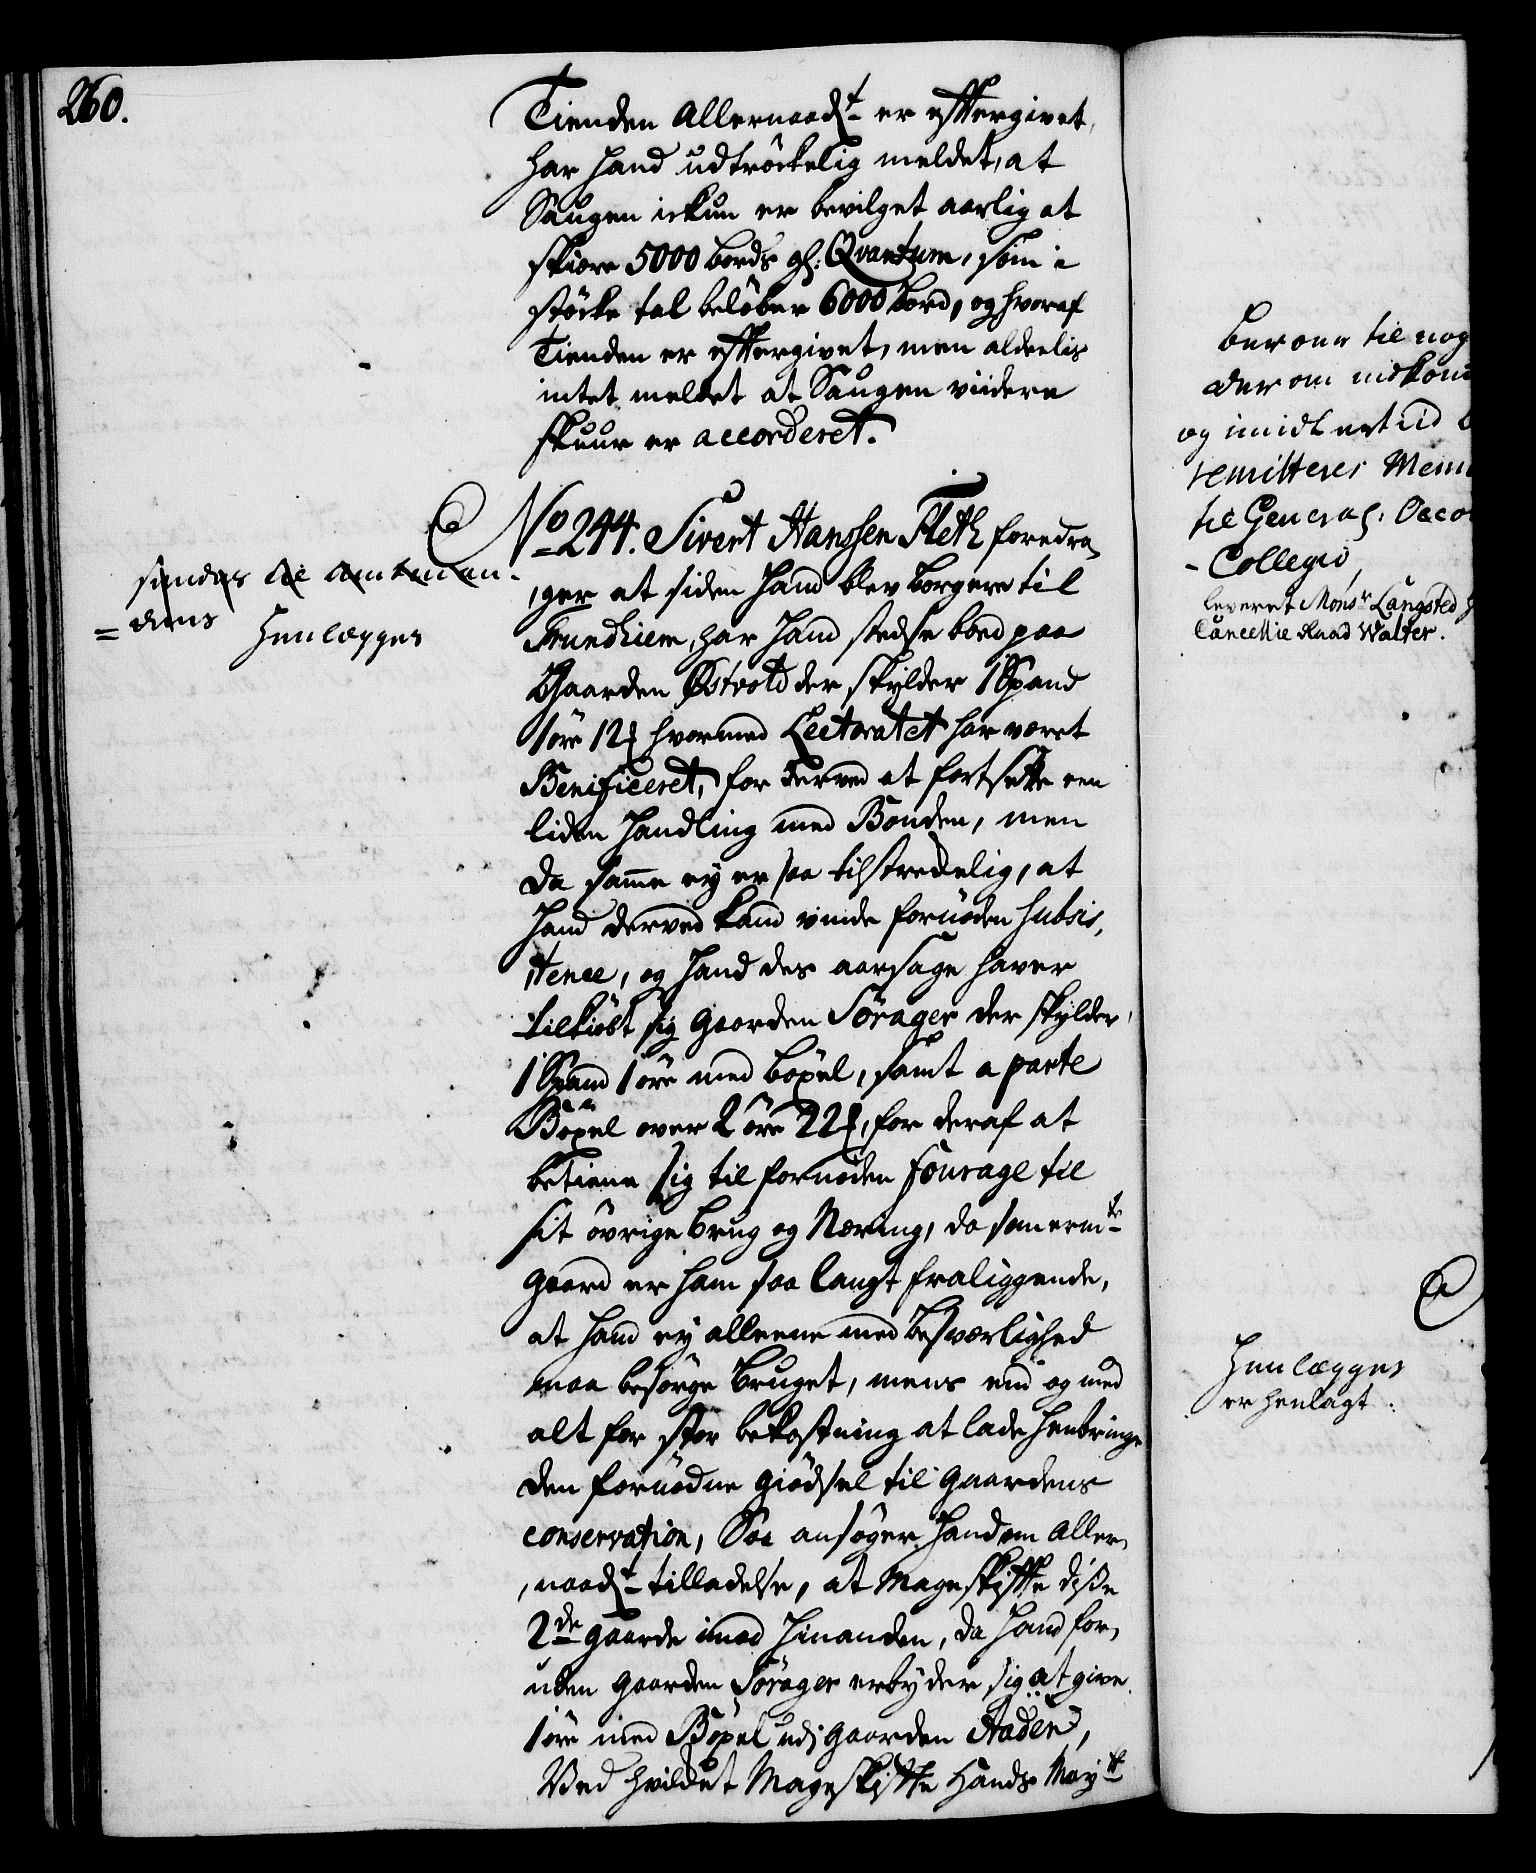 260.
Tienden Allernaadst er eftergivet,
har hand udtrÿckelig meldet, at
Saugen ickun er bevilget aarlig at
skiære 5000 bords gl: Qvantum, som i
stöcke tal belöber 6000 bord, og hvoraf
Tienden er eftergivet, men aldeelis
intet meldet at Saugen viidere
skuur er accorderet.
No 244. Sivert Hanssen Fleth foredra,
,ger at siden hand blev borger til
Trundhiem, har hand stedse boed paa
Gaarden Østvold der skylder 1 Spand
1 öre 12 hvormed Lectoratet har været
Benificeret, for derved at fortsette een
liden handling med Bonden, men
da samme ey er saa tilstrædelig, at
hand derved kand vinde fornöden subsis,
,tence, og hand des aarsage haver
tilkiöbt sig gaarden Sörager der skylder,
1 Spand 1 öre med böxel, samt a parte
Böxel over 2 öre 22, for deraf at
betiene sig til fornöden fourage til
sit övrige brug og Næring, da som ermte
gaard er ham saa langt fraliggende,
at hand ey alleene med besværlighed
maa besörge bruget, mens end og med
alt for stor bekostning at lade henbringe
den fornödne giödsel til gaardens
conservation, Saa ansöger hand om Aller,
,naadst tilladelse, at Mageskifte disse
2de gaarde imod hinanden, da hand for,
uden gaarden Sörager erbyder sig at give
1 öre med Böxel udj gaarden Aaden,
Ved hvilket Mageskifte Hands Mayts
sendes til Amtman-
=dens
Henlægges
beroer til nog
derom indkom
og imidlertiid
remitteres Mem
til General: Oeco
-Collegio,
leveret Monsr Langsted
Cancellie Raad Walter.
Henlægges
er henlagt.